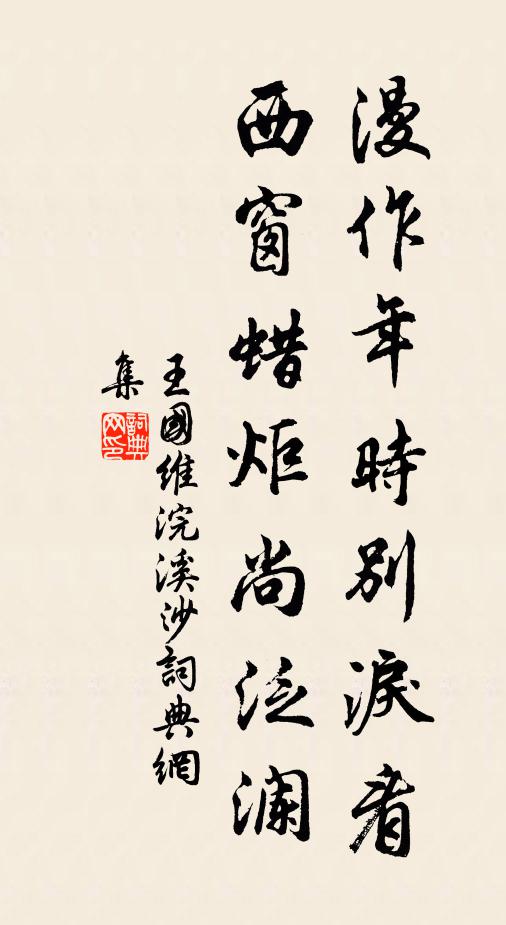 漫作年時別淚看
西窗蜡炬尚泛澜
王國維浣溪沙詞典網
集
詞典网印